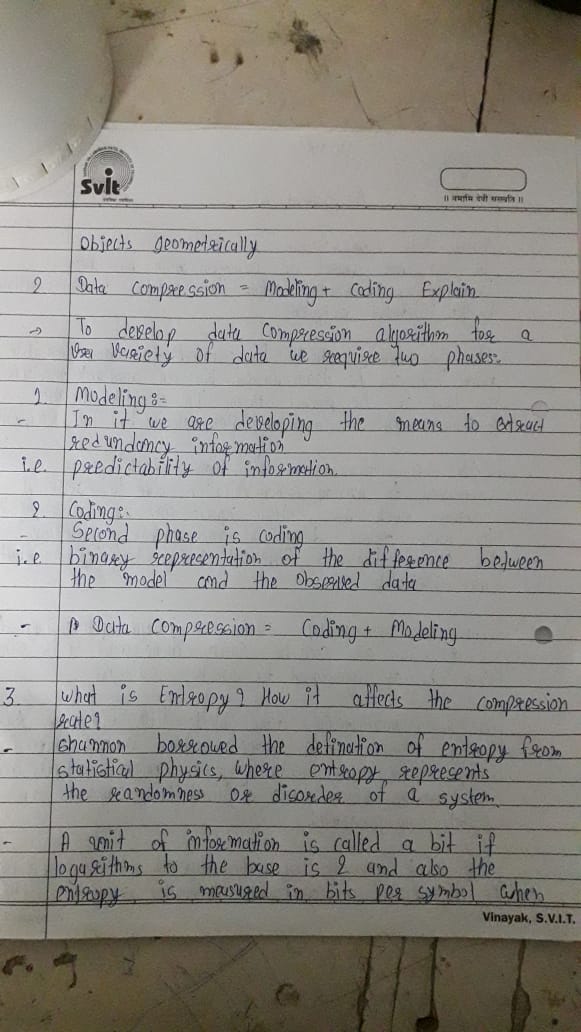 Svit
॥ नमामि देवी सरस्वति ॥
Objects geometrically
2 Data compression = Modeling + Coding Explain
→ To develop data compression algorithm for a
variety of data we require two phases:-
1. Modeling :-
- In it we are developing the means to extract
redundancy information
i.e. predictability of information.
2. Coding :-
- Second phase is coding
i.e. binary representation of the difference between
the model and the observed data
- Data compression = Coding + Modeling
3. What is Entropy? How it affects the compression
rate?
- Shannon borrowed the defination of entropy from
statistical physics, where entropy represents
the randomness or disorder of a system.
- A unit of information is called a bit if
logarithms to the base is 2 and also the
entropy is measured in bits per symbol when
Vinayak, S.V.I.T.